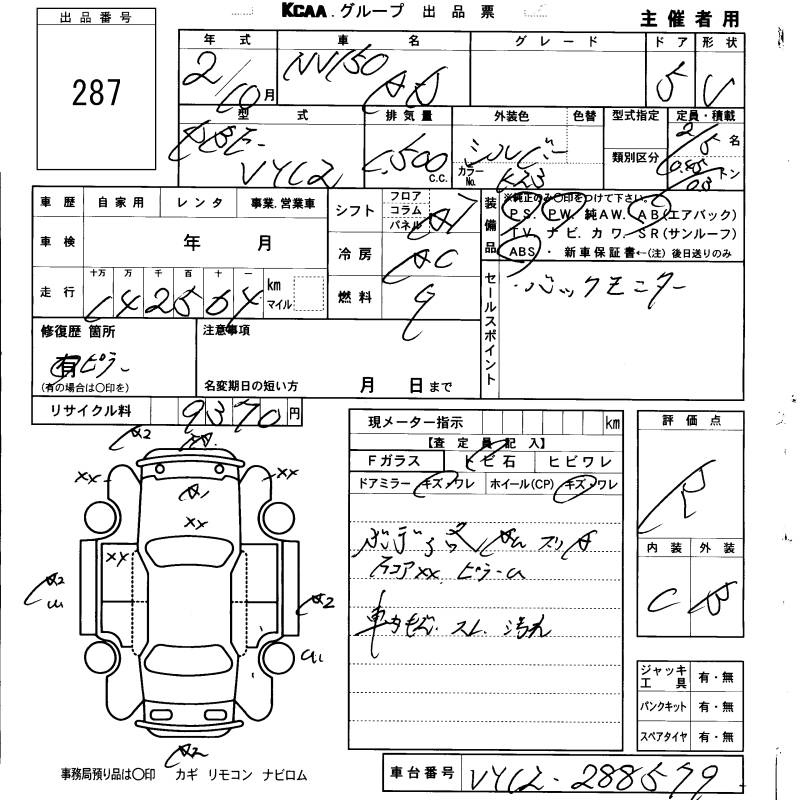 KCAA. グループ 出品票
主催者用
出品番号
287
年式 車名 グレード ドア 形状
2/10月 NV150 AD 5 V
型式 排気量 外装色 色替 型式指定 定員・積載
DBE-VY12 1,500 c.c. シルバー カラーNo. K23 類別区分 2/5名
トン
車歴 自家用 レンタ 事業.営業車
シフト フロア コラム パネル AT
装備品 ※純正のみ〇印をつけて下さい。
PS. PW. 純AW. AB(エアバック)
TV. ナビ. カワ. SR(サンルーフ)
ABS・ 新車保証書←(注) 後日送りのみ
車検 年 月
冷房 AC
走行 十万 万 千 百 十 一 km マイル
142504
燃料 G
セールスポイント
・バックモニター
修復歴 箇所
有 ピラー
(有の場合は〇印を)
注意事項
名変期日の短い方 月 日まで
リサイクル料 9370円
現メーター指示 km
【査定員記入】
Fガラス ヒビ石 ヒビワレ
ドアミラー キズ・ワレ ホイール(CP) キズ・ワレ
スリキ
コアxx ピラーU
スレ 汚れ
評価点
R
内装 外装
C B
A2
xx
xx
A1
xx
xx
A2
A2
U1
ジャッキ 工具 有・無
パンクキット 有・無
スペアタイヤ 有・無
事務局預り品は〇印 カギ リモコン ナビロム
車台番号 VY12-288579